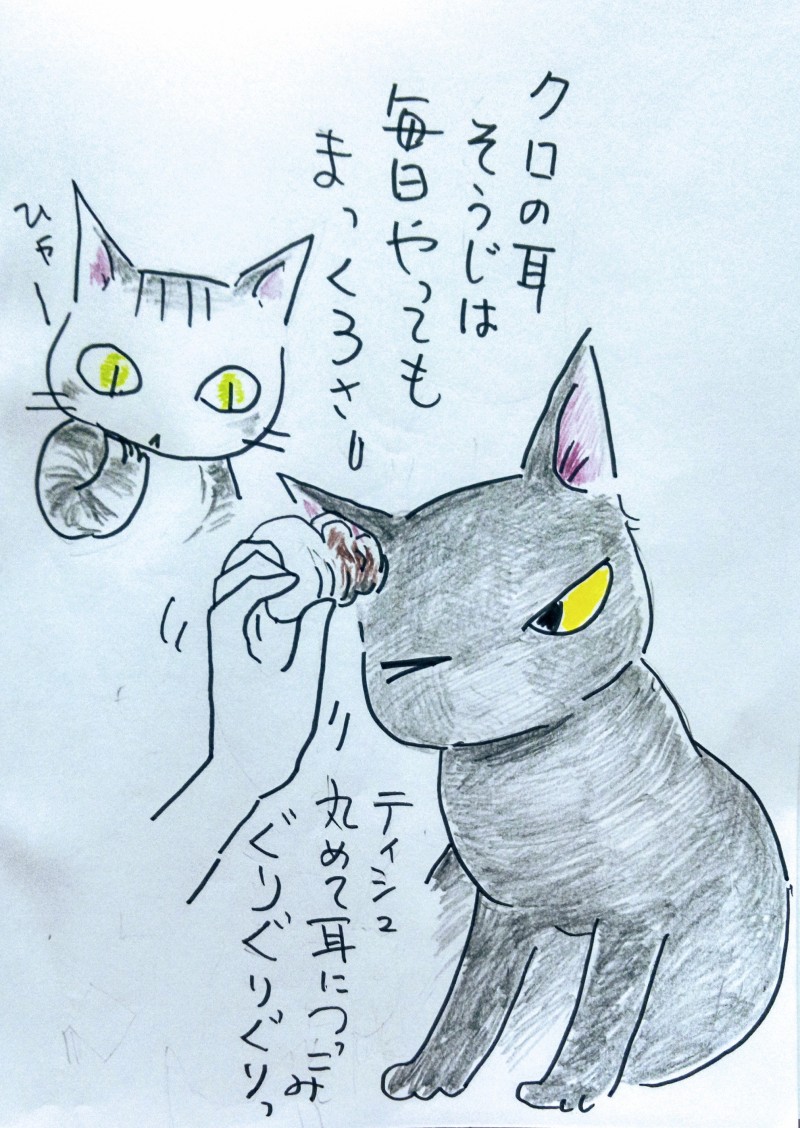 クロの耳
そうじは
毎日やっても
まっくろさー
ひゃー
ティシュ
丸めて耳につっこみ
ぐりぐりぐりっ